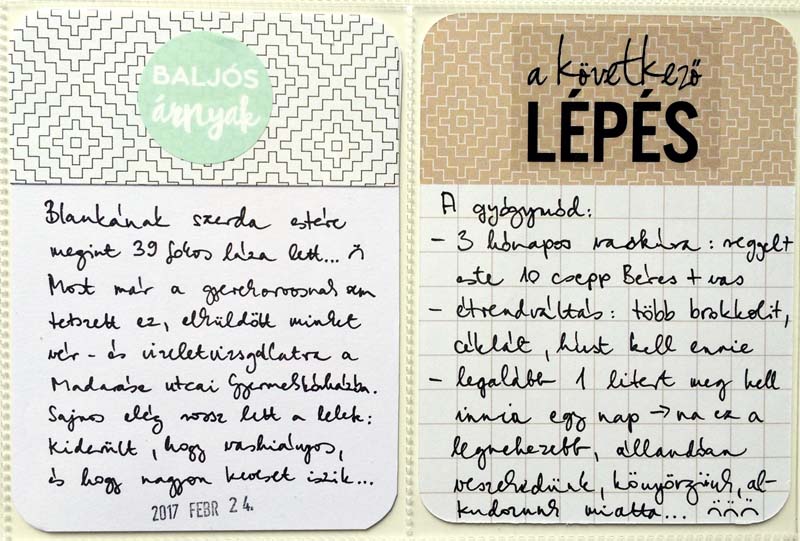 BALJÓS
árnyak
Blankának szerda estére
megint 39 fokos láza lett... :(
Most már a gyerekorvosnak sem
tetszett ez, elküldött minket
vér- és vizeletvizsgálatra a
Madarász utcai Gyermekkórházba.
Sajnos elég rossz lett a lelet:
kiderült, hogy vashiányos,
és hogy nagyon keveset iszik...
2017 FEBR 24.
a következő
LÉPÉS
A gyógymód:
- 3 hónapos vaskúra: reggel+
este 10 csepp Béres + vas
- étrendváltás: több brokkolit,
céklát, húst kell ennie
- legalább 1 litert meg kell
innia egy nap → na ez a
legnehezebb, állandóan
veszekedünk, könyörgünk, al-
kudozunk miatta... :( :( :(